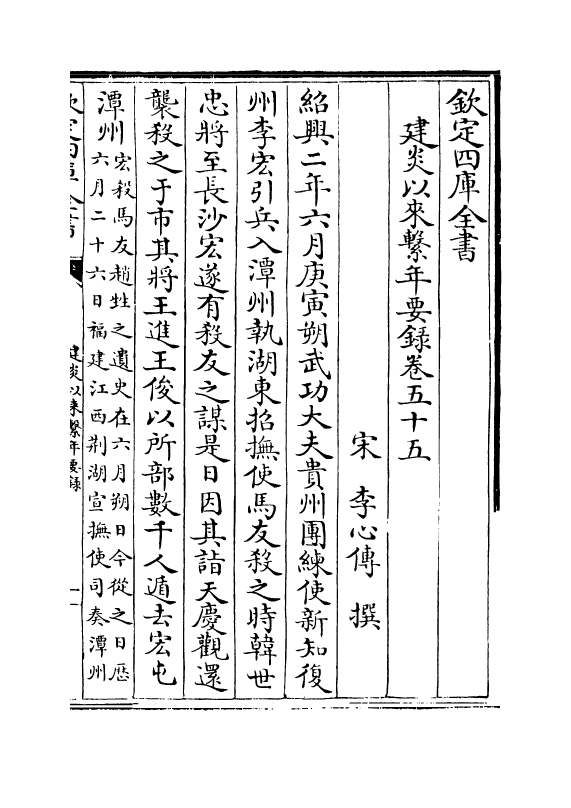 欽定四庫全書
建炎以來繫年要錄卷五十五
宋 李心傳 撰
紹興二年六月庚寅朔武功大夫貴州團練使新知復
州李宏引兵入潭州執湖東招撫使馬友殺之時韓世
忠將至長沙宏遂有殺友之謀是日因其詣天慶觀還
襲殺之于市其將王進王俊以所部數千人遁去宏屯
潭州
宏殺馬友趙甡之遺史在六月朔日今從之日厯
六月二十六日福建江西荆湖宣撫使司奏潭州
欽定四庫全書
建炎以來繫年要錄
一